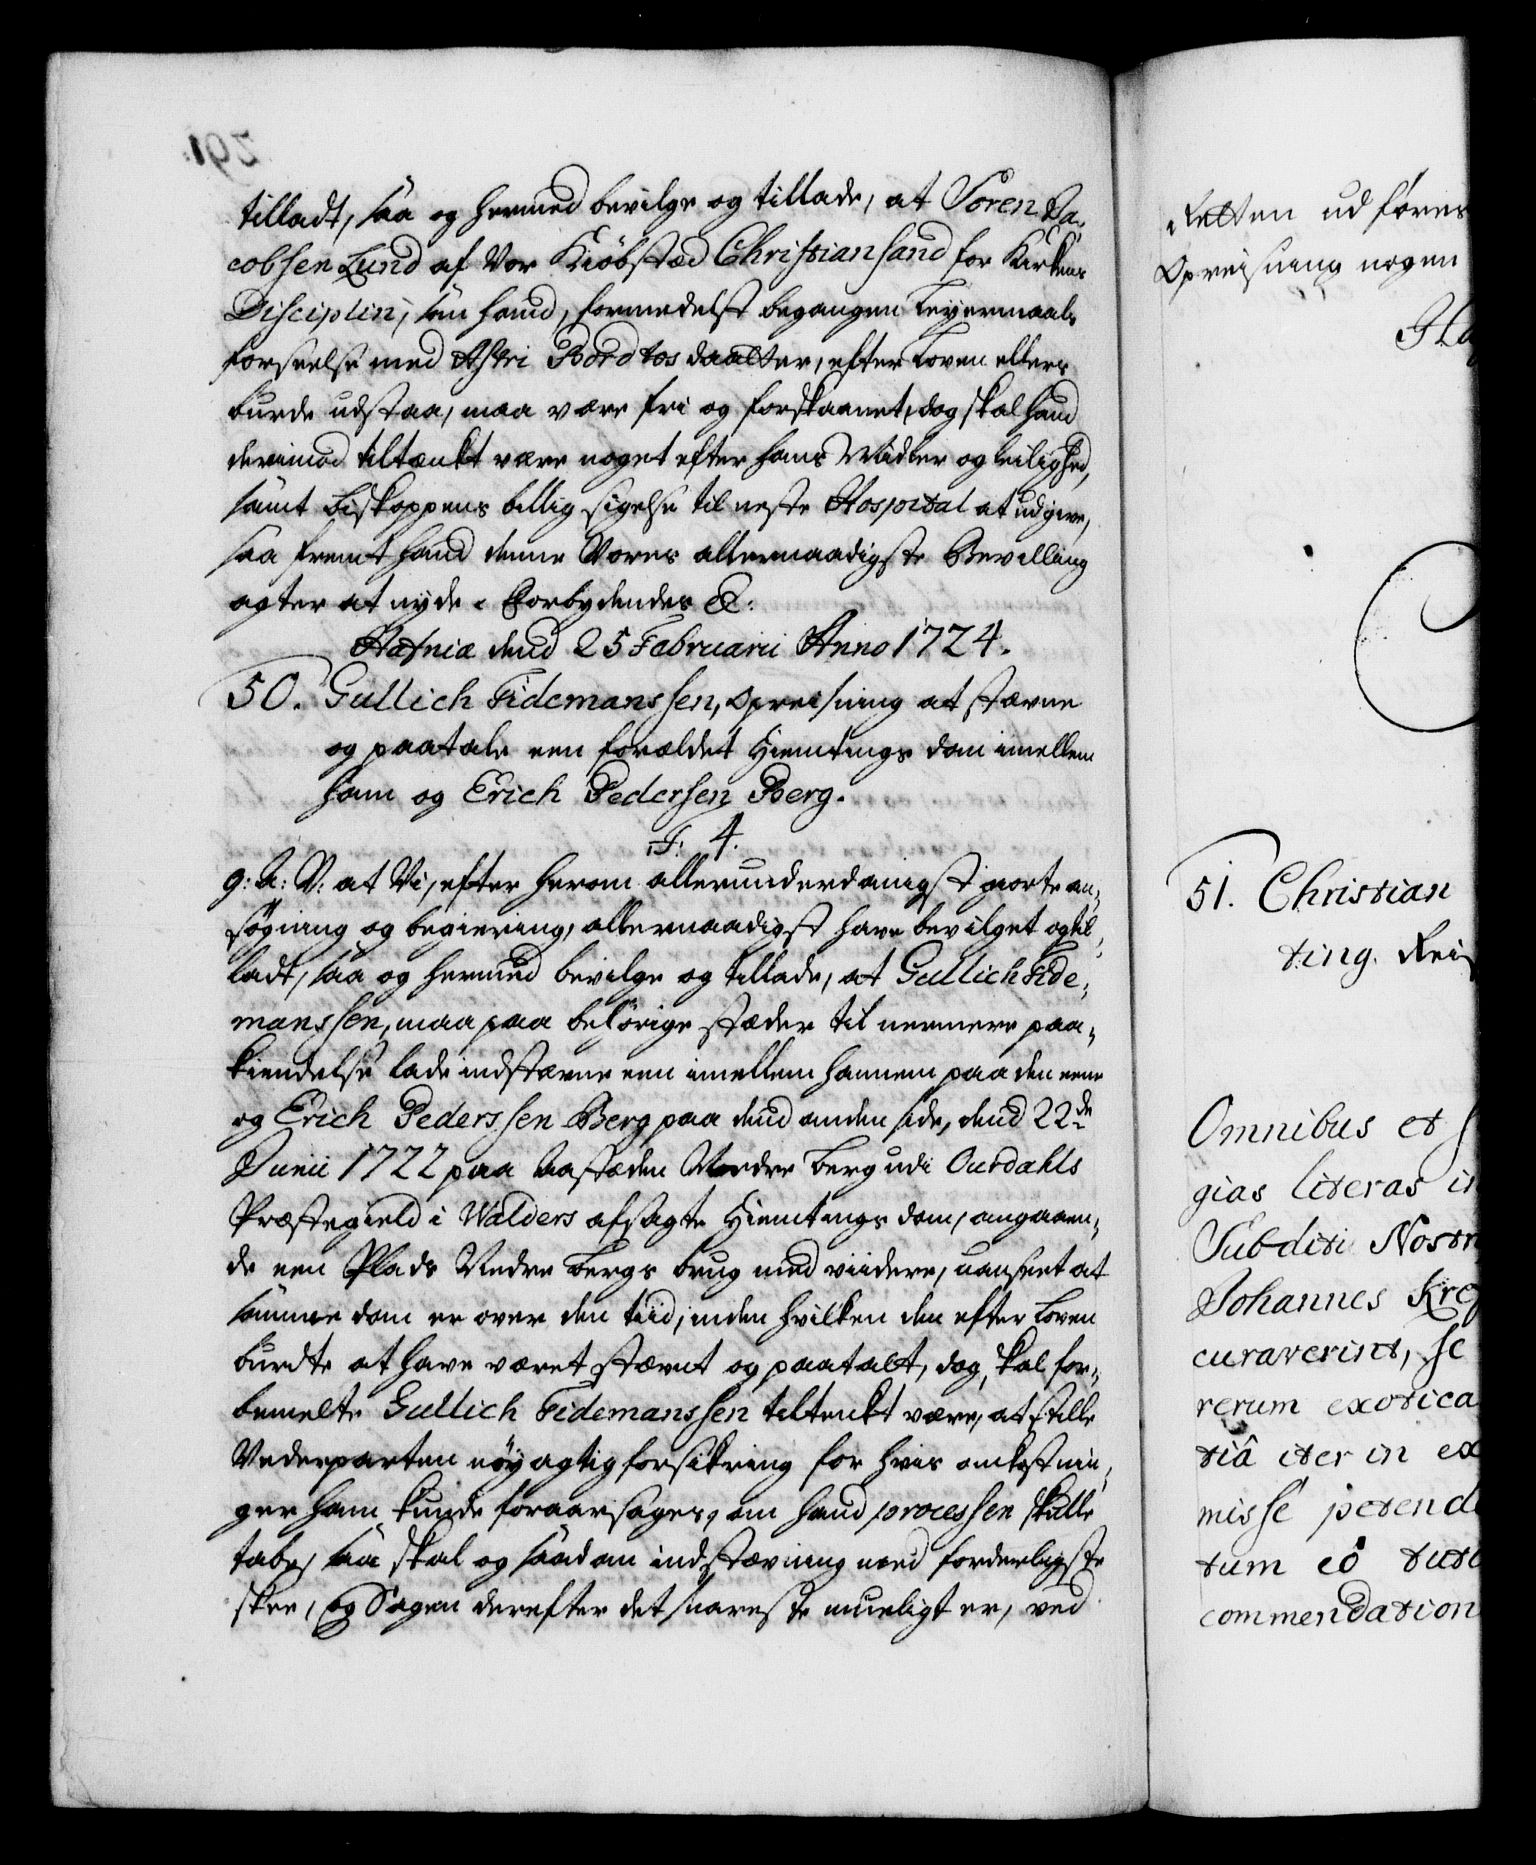 tilladt, saa og hermed bevilge og tillade, at Søren Ja-
cobsen Lund af Vor Kiöbstæd Christiansand for Kirkens
Disciplin, som hand, formedelst begangen Leyermaals
forseelse med Astri Bordtos daatter, efter Loven ellers
burde udstaa, maa være fri og forskaanet, dog skal hand
derimod tiltænkt være noget efter hans Midler og leilighed,
samt Biskoppens billig sigelse til neste Hospital at udgive,
saa fremt hand denne Vores allernaadigste Bevilling
agter at nyde. Forbydendes &:
Hafniæ dend 25 Februarii Anno 1724.
50. Gullich Tidemanssen, Opreisning at stævne
og paatale een forældet Hiemtings dom imellem
ham og Erich Pedersen Berg.
F. 4.
g: A: V: at Vi, efter herom allerunderdanigst giorte an-
søgning og begiering, allernaadigst have bevilget og til-
ladt, saa og hermed bevilge og tillade, at Gullich Tide-
manssen, maa paa behørige stæder til nermere paa-
kiendelse lade indstævne een imellem hannem paa den eene
og Erich Pederssen Berg paa dend anden side, dend 22de
Junii 1722 paa Aastæden Nedre Berg udi Ourdahls
Præstegield i Walders afsagte Hiemtings dom, angaaen-
de een Plads Nedre Bergs brug med viidere, uanseet at
samme dom er over den tiid, inden hvilken den efter Loven
burdte at have været stævnt og paatalt, dog, skal for-
bemelte Gullich Tidemanssen tiltenkt være, at stille
Vederparten nøyagtig forsikring for hvis omkostnin-
ger ham kunde foraarsages, om hand processen skulle
tabe, saa skal og saadan indstævning med forderligste
skee, og Sagen derefter det snareste mueligt er, ved
Retten udføres
Opreisning nogen
51. Christian
ting. Reis
Omnibus et
gias literas in
Subditi Nostri
Johannes
curaverint, se
rerum exotica
tiâ iter in ex
misse petend
tum eô
commendation